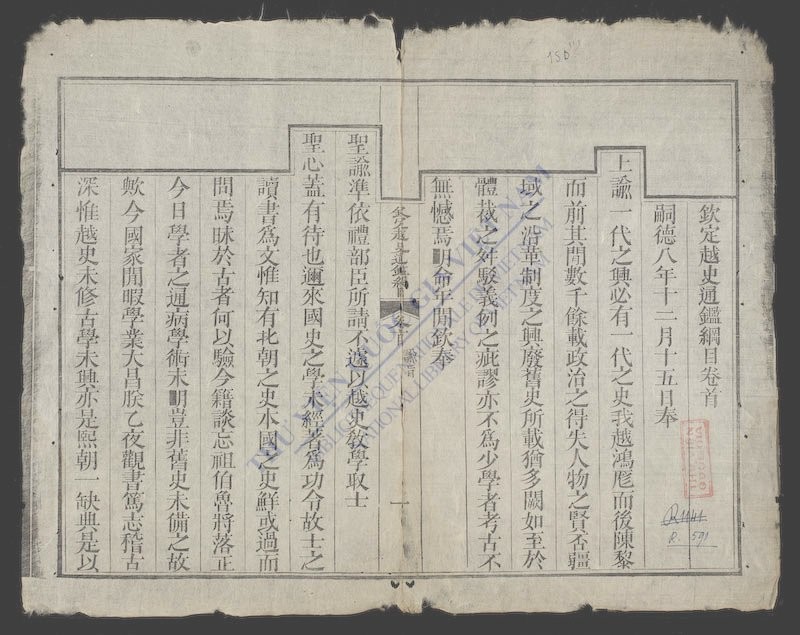 150
欽定越史通鑑綱目卷首
嗣德八年十二月十五日奉
上諭一代之興必有一代之史我越鴻厖而後陳黎
而前其間數千餘載政治之得失人物之賢否疆
域之沿革制度之興廢舊史所載猶多闕如至於
體裁之舛駁義例之疵謬亦不為少學者考古不
無憾焉明命年間欽奉
欽定越史通鑑綱目
卷首
一
聖諭準依禮部臣所請不遽以越史敎學取士
聖心蓋有待也邇來國史之學未經著為功令故士之
讀書為文惟知有北朝之史本國之史鮮或過而
問焉昧於古者何以驗今籍談忘祖伯魯將落正
今日學者之通病學術未明豈非舊史未備之故
歟今國家閒暇學業大昌朕乙夜觀書篤志稽古
深惟越史未修古學未興亦是熙朝一缺典是以
R. 591
THƯ VIỆN QUỐC GIA VIỆT NAM
NATIONAL LIBRARY OF VIETNAM